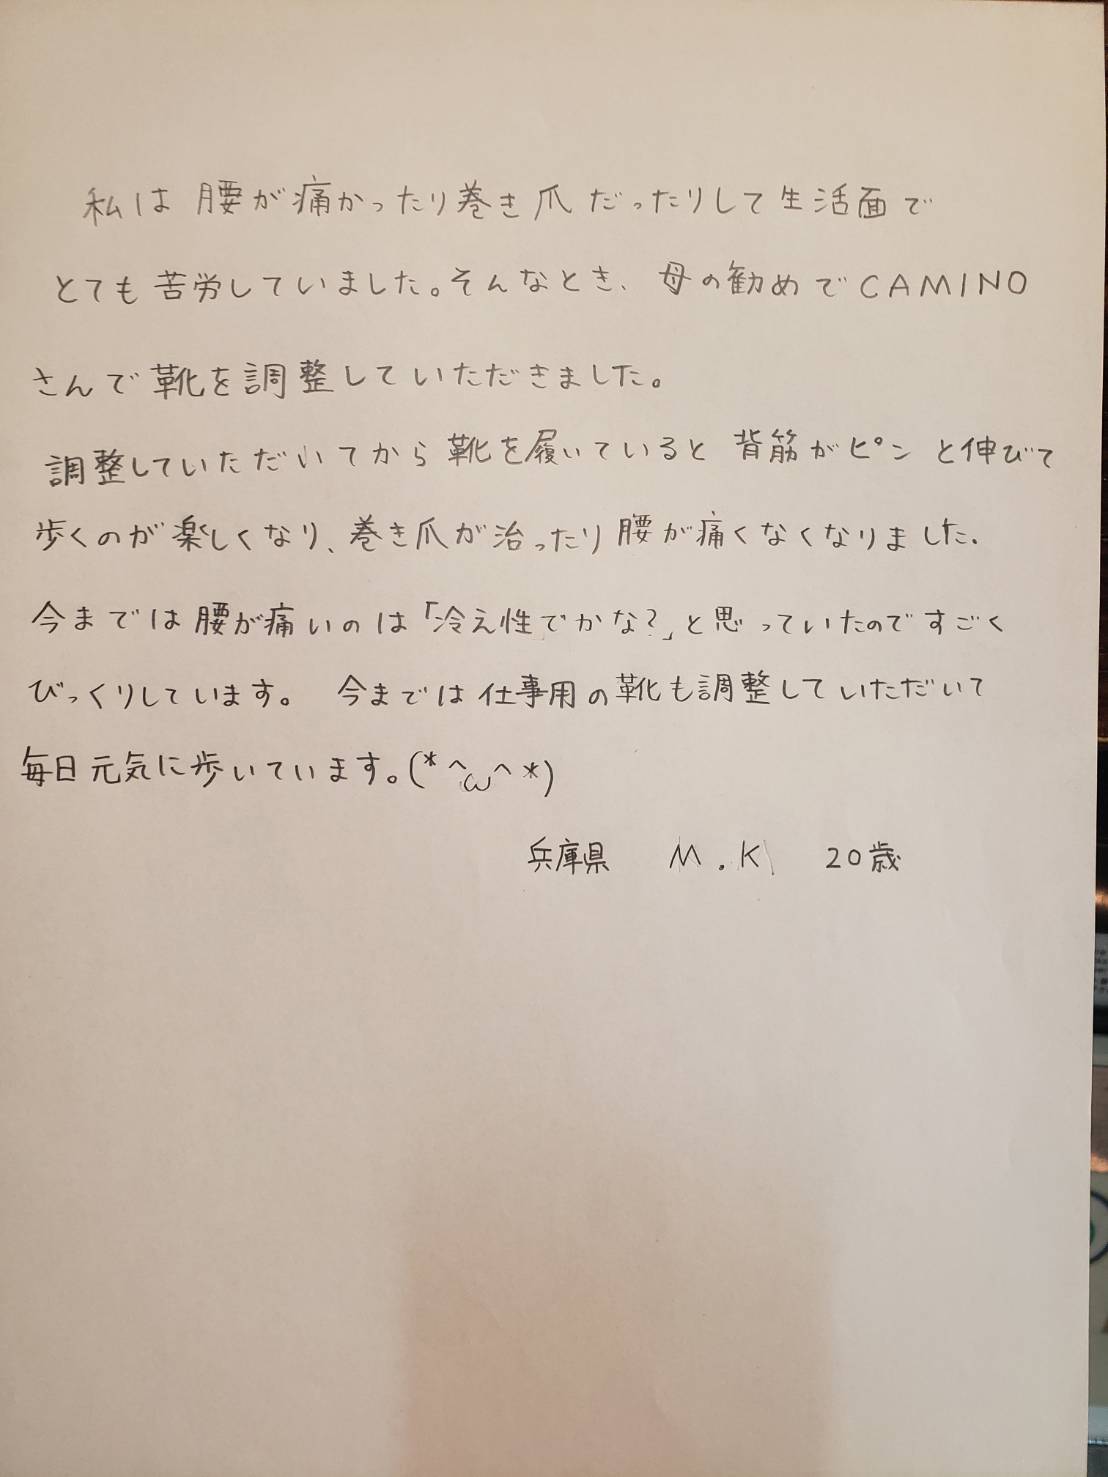 私は腰が痛かったり巻き爪だったりして生活面で
とても苦労していました。そんなとき、母の勧めでCAMINO
さんで靴を調整していただきました。
調整していただいてから靴を履いていると背筋がピンと伸びて
歩くのが楽しくなり、巻き爪が治ったり腰が痛くなくなりました.
今までは腰が痛いのは「冷え性でかな?」と思っていたのですごく
びっくりしています。 今までは仕事用の靴も調整していただいて
毎日元気に歩いています。(*^ω^*)
兵庫県 M.K 20歳